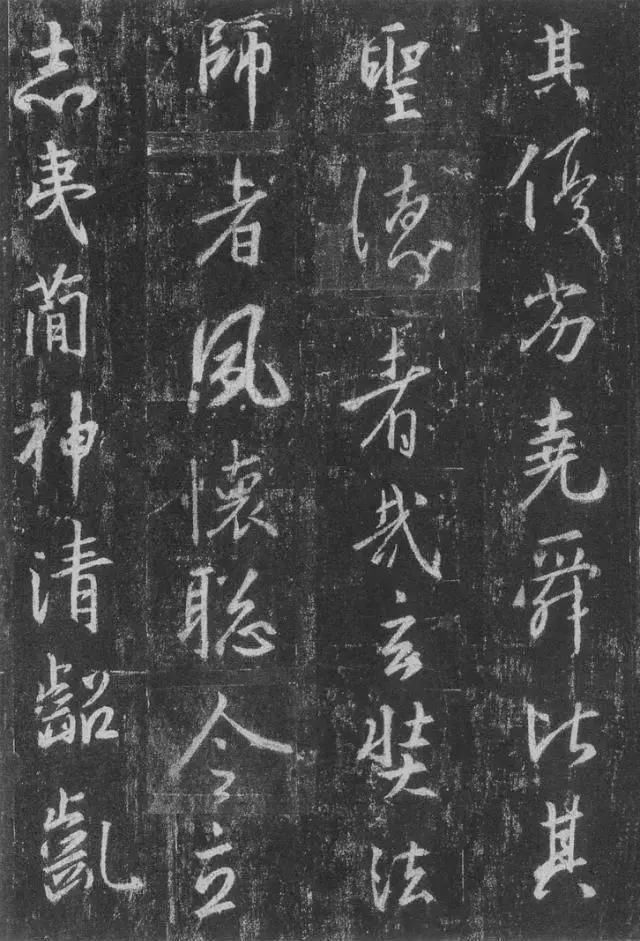 其優劣堯舜比其
聖德者哉玄奘法
師者夙懷聡令立
志夷蕳神清齠齔